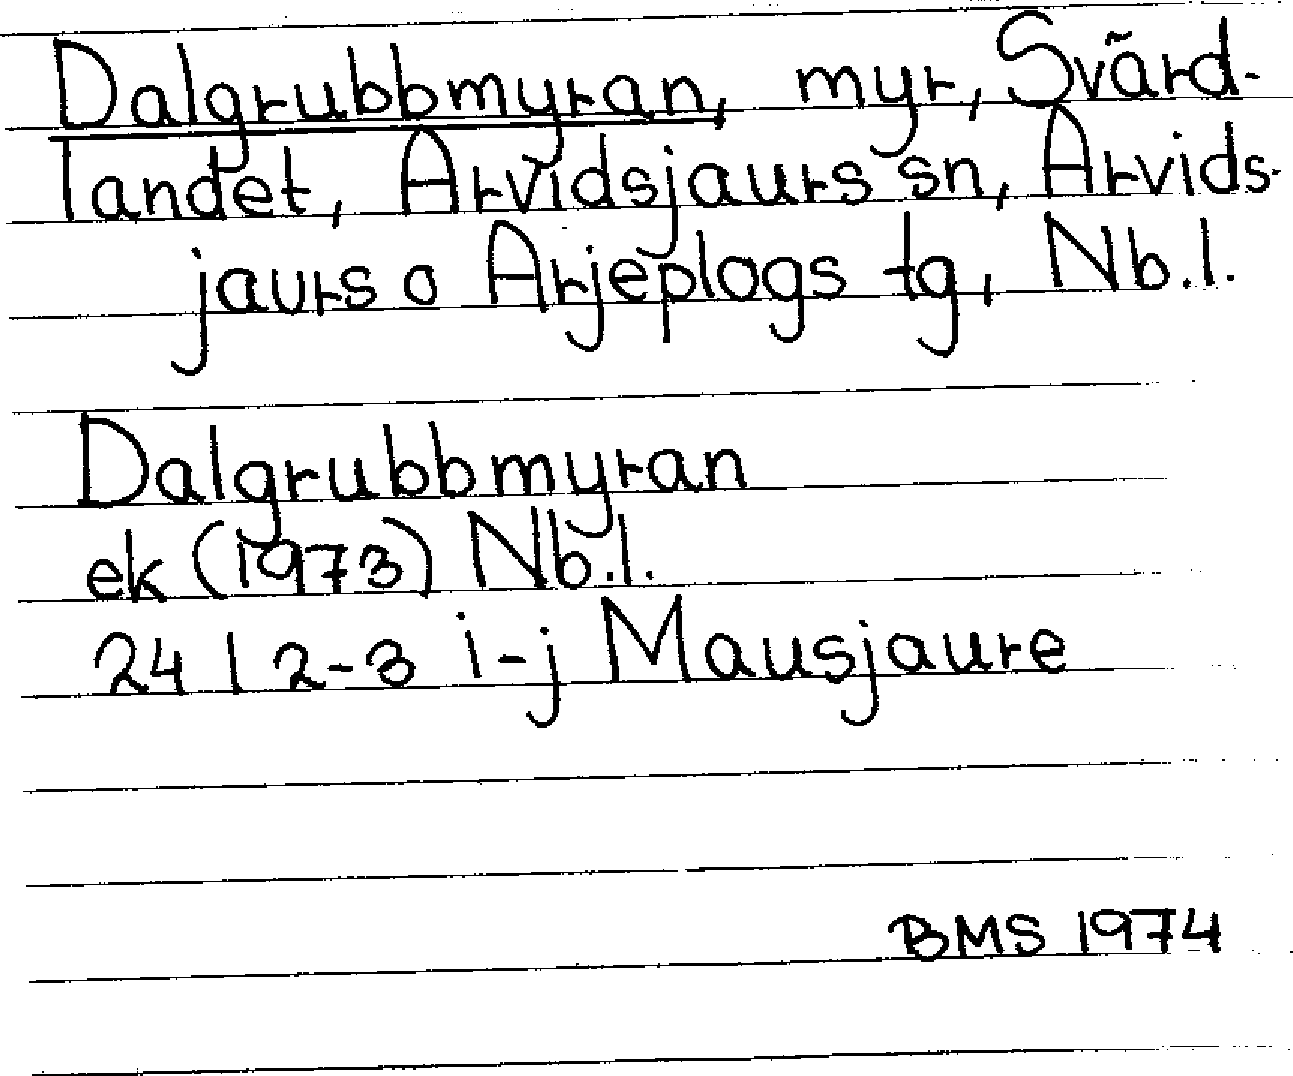 Dalgrubbmyran, myr, Svärd-
landet, Arvidsjaurs sn, Arvids-
jaurs o Arjeplogs tg, Nb.l.
Dalgrubbmyran
ek (1973) Nb.l.
24 I 2-3 i-j Mausjaure
BMS 1974